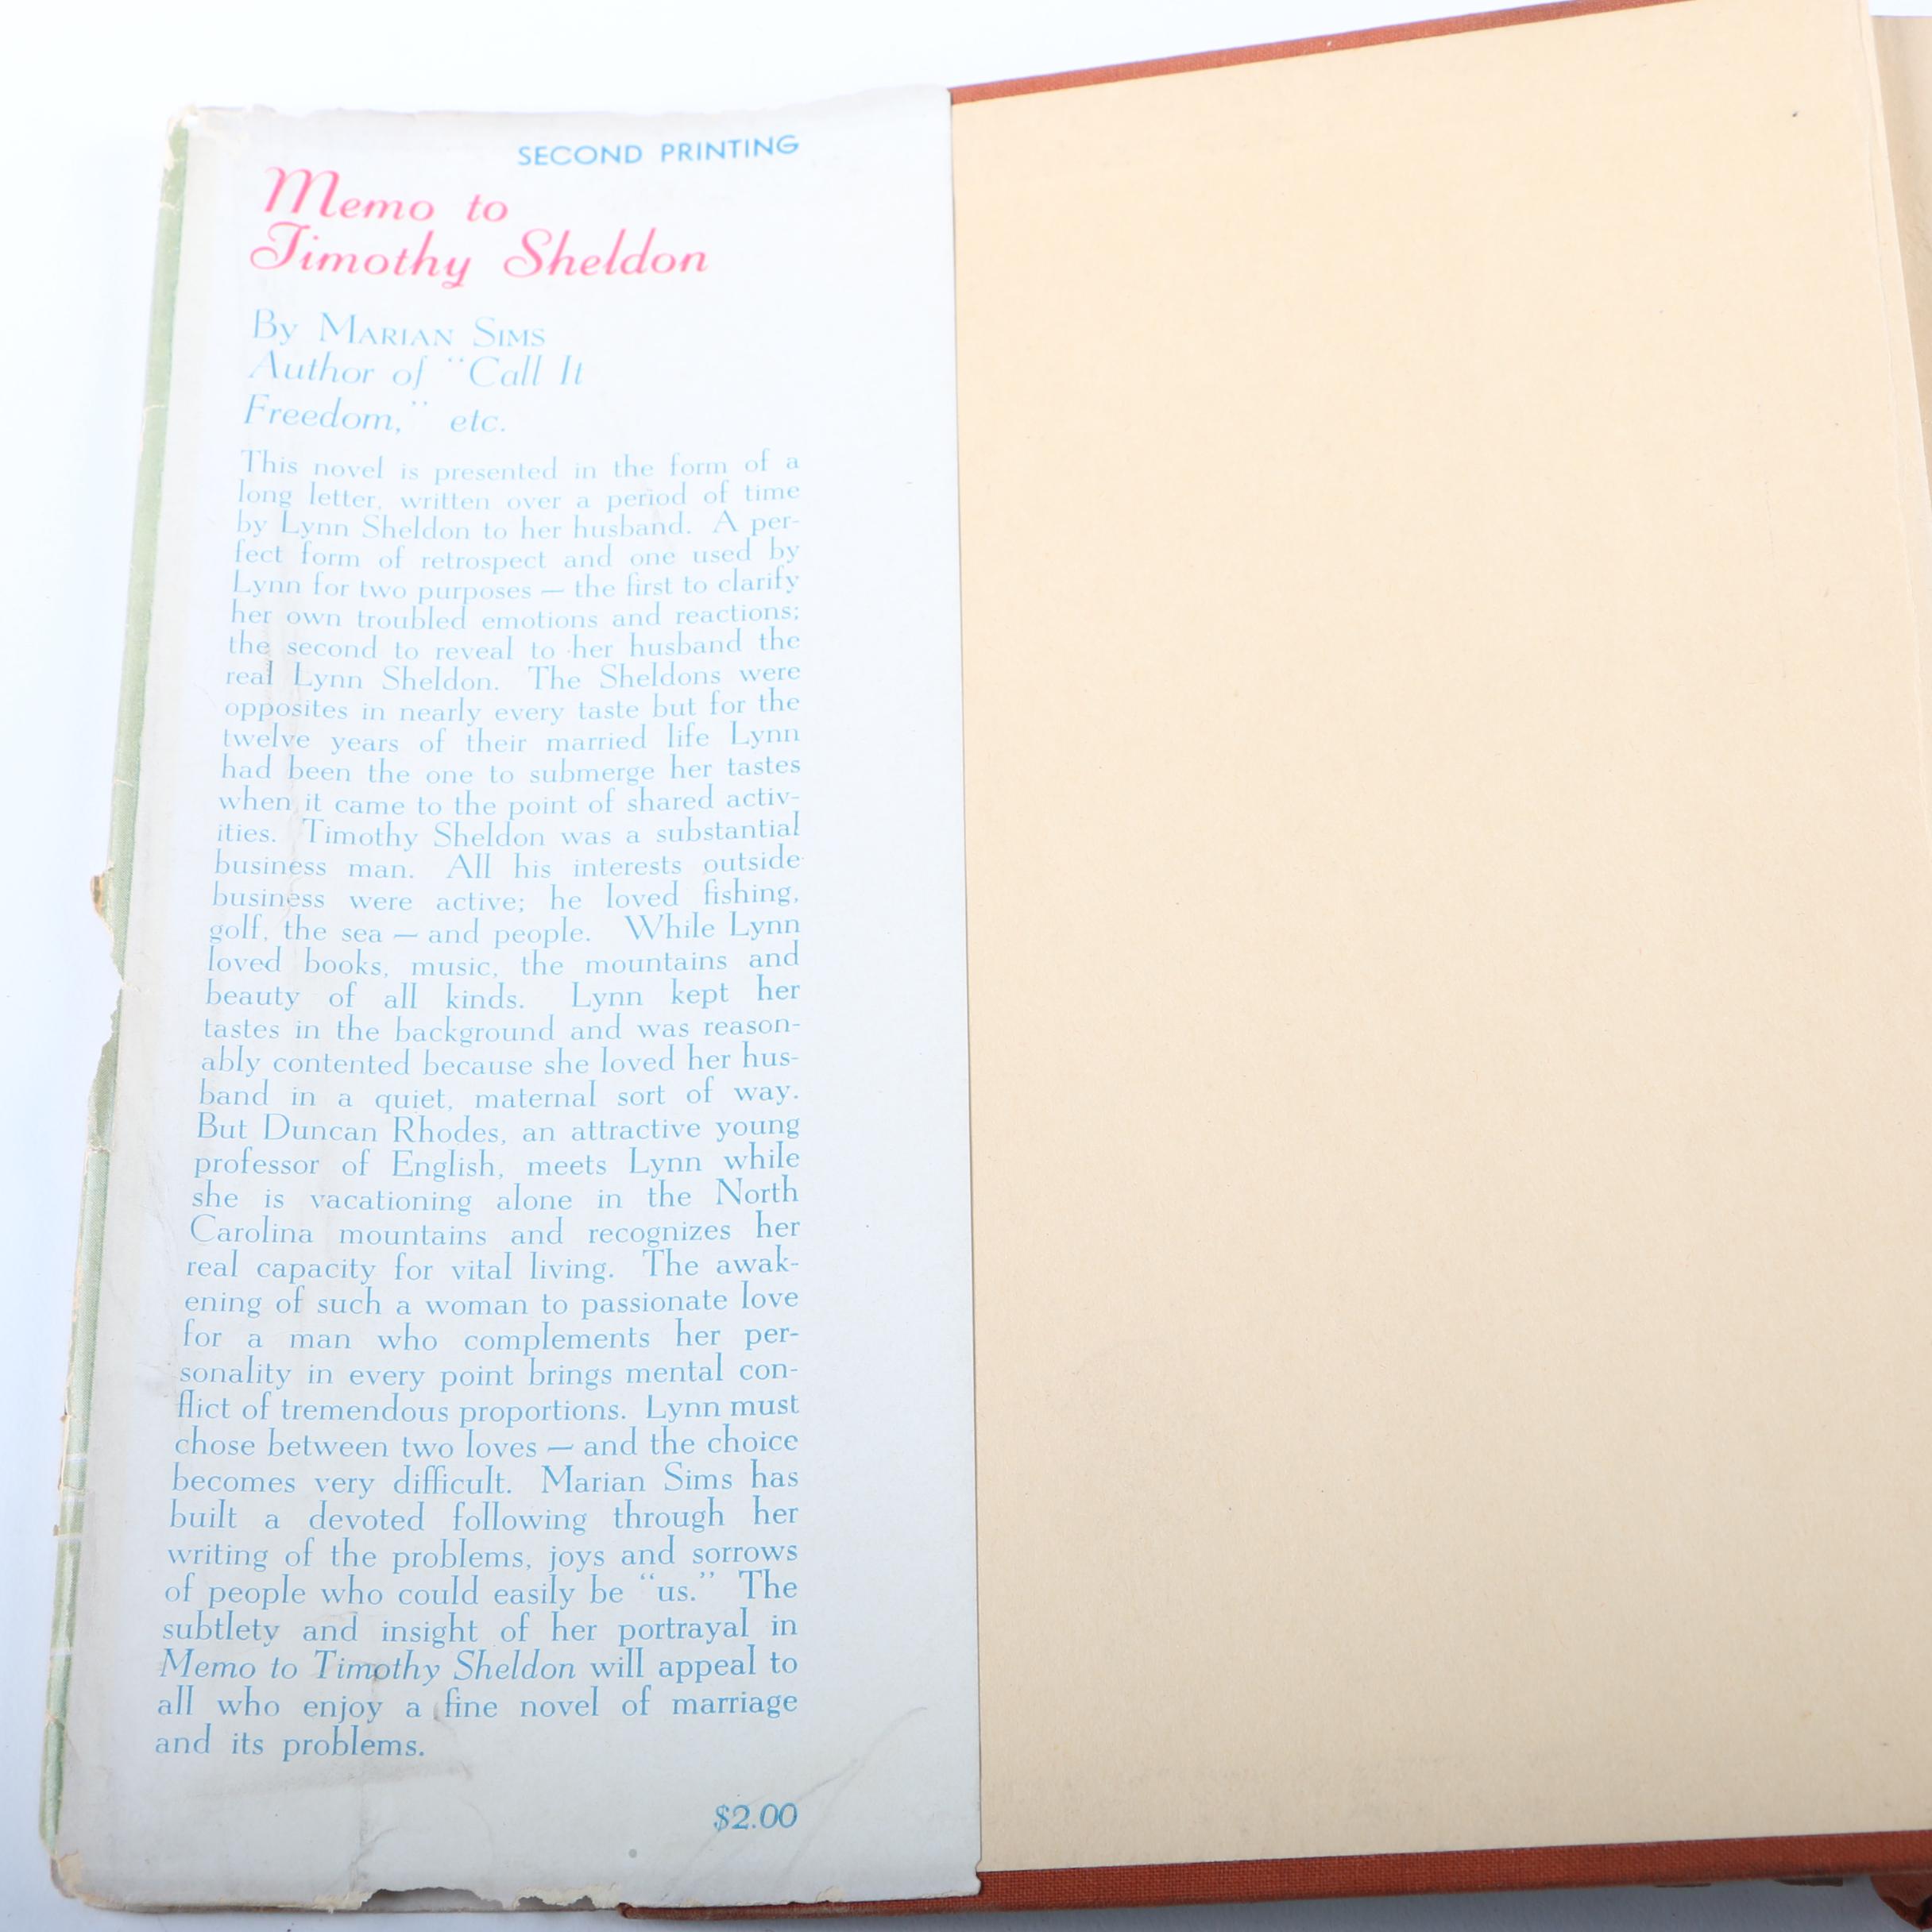 SECOND PRINTING
Memo to
Timothy Sheldon
By MARIAN SIMS
Author of "Call It
Freedom," etc.
This novel is presented in the form of a
long letter, written over a period of time
by Lynn Sheldon to her husband. A per-
fect form of retrospect and one used by
Lynn for two purposes — the first to clarify
her own troubled emotions and reactions;
the second to reveal to her husband the
real Lynn Sheldon. The Sheldons were
opposites in nearly every taste but for the
twelve years of their married life Lynn
had been the one to submerge her tastes
when it came to the point of shared activ-
ities. Timothy Sheldon was a substantial
business man. All his interests outside
business were active; he loved fishing,
golf, the sea — and people. While Lynn
loved books, music, the mountains and
beauty of all kinds. Lynn kept her
tastes in the background and was reason-
ably contented because she loved her hus-
band in a quiet, maternal sort of way.
But Duncan Rhodes, an attractive young
professor of English, meets Lynn while
she is vacationing alone in the North
Carolina mountains and recognizes her
real capacity for vital living. The awak-
ening of such a woman to passionate love
for a man who complements her per-
sonality in every point brings mental con-
flict of tremendous proportions. Lynn must
chose between two loves — and the choice
becomes very difficult. Marian Sims has
built a devoted following through her
writing of the problems, joys and sorrows
of people who could easily be "us." The
subtlety and insight of her portrayal in
Memo to Timothy Sheldon will appeal to
all who enjoy a fine novel of marriage
and its problems.
$2.00